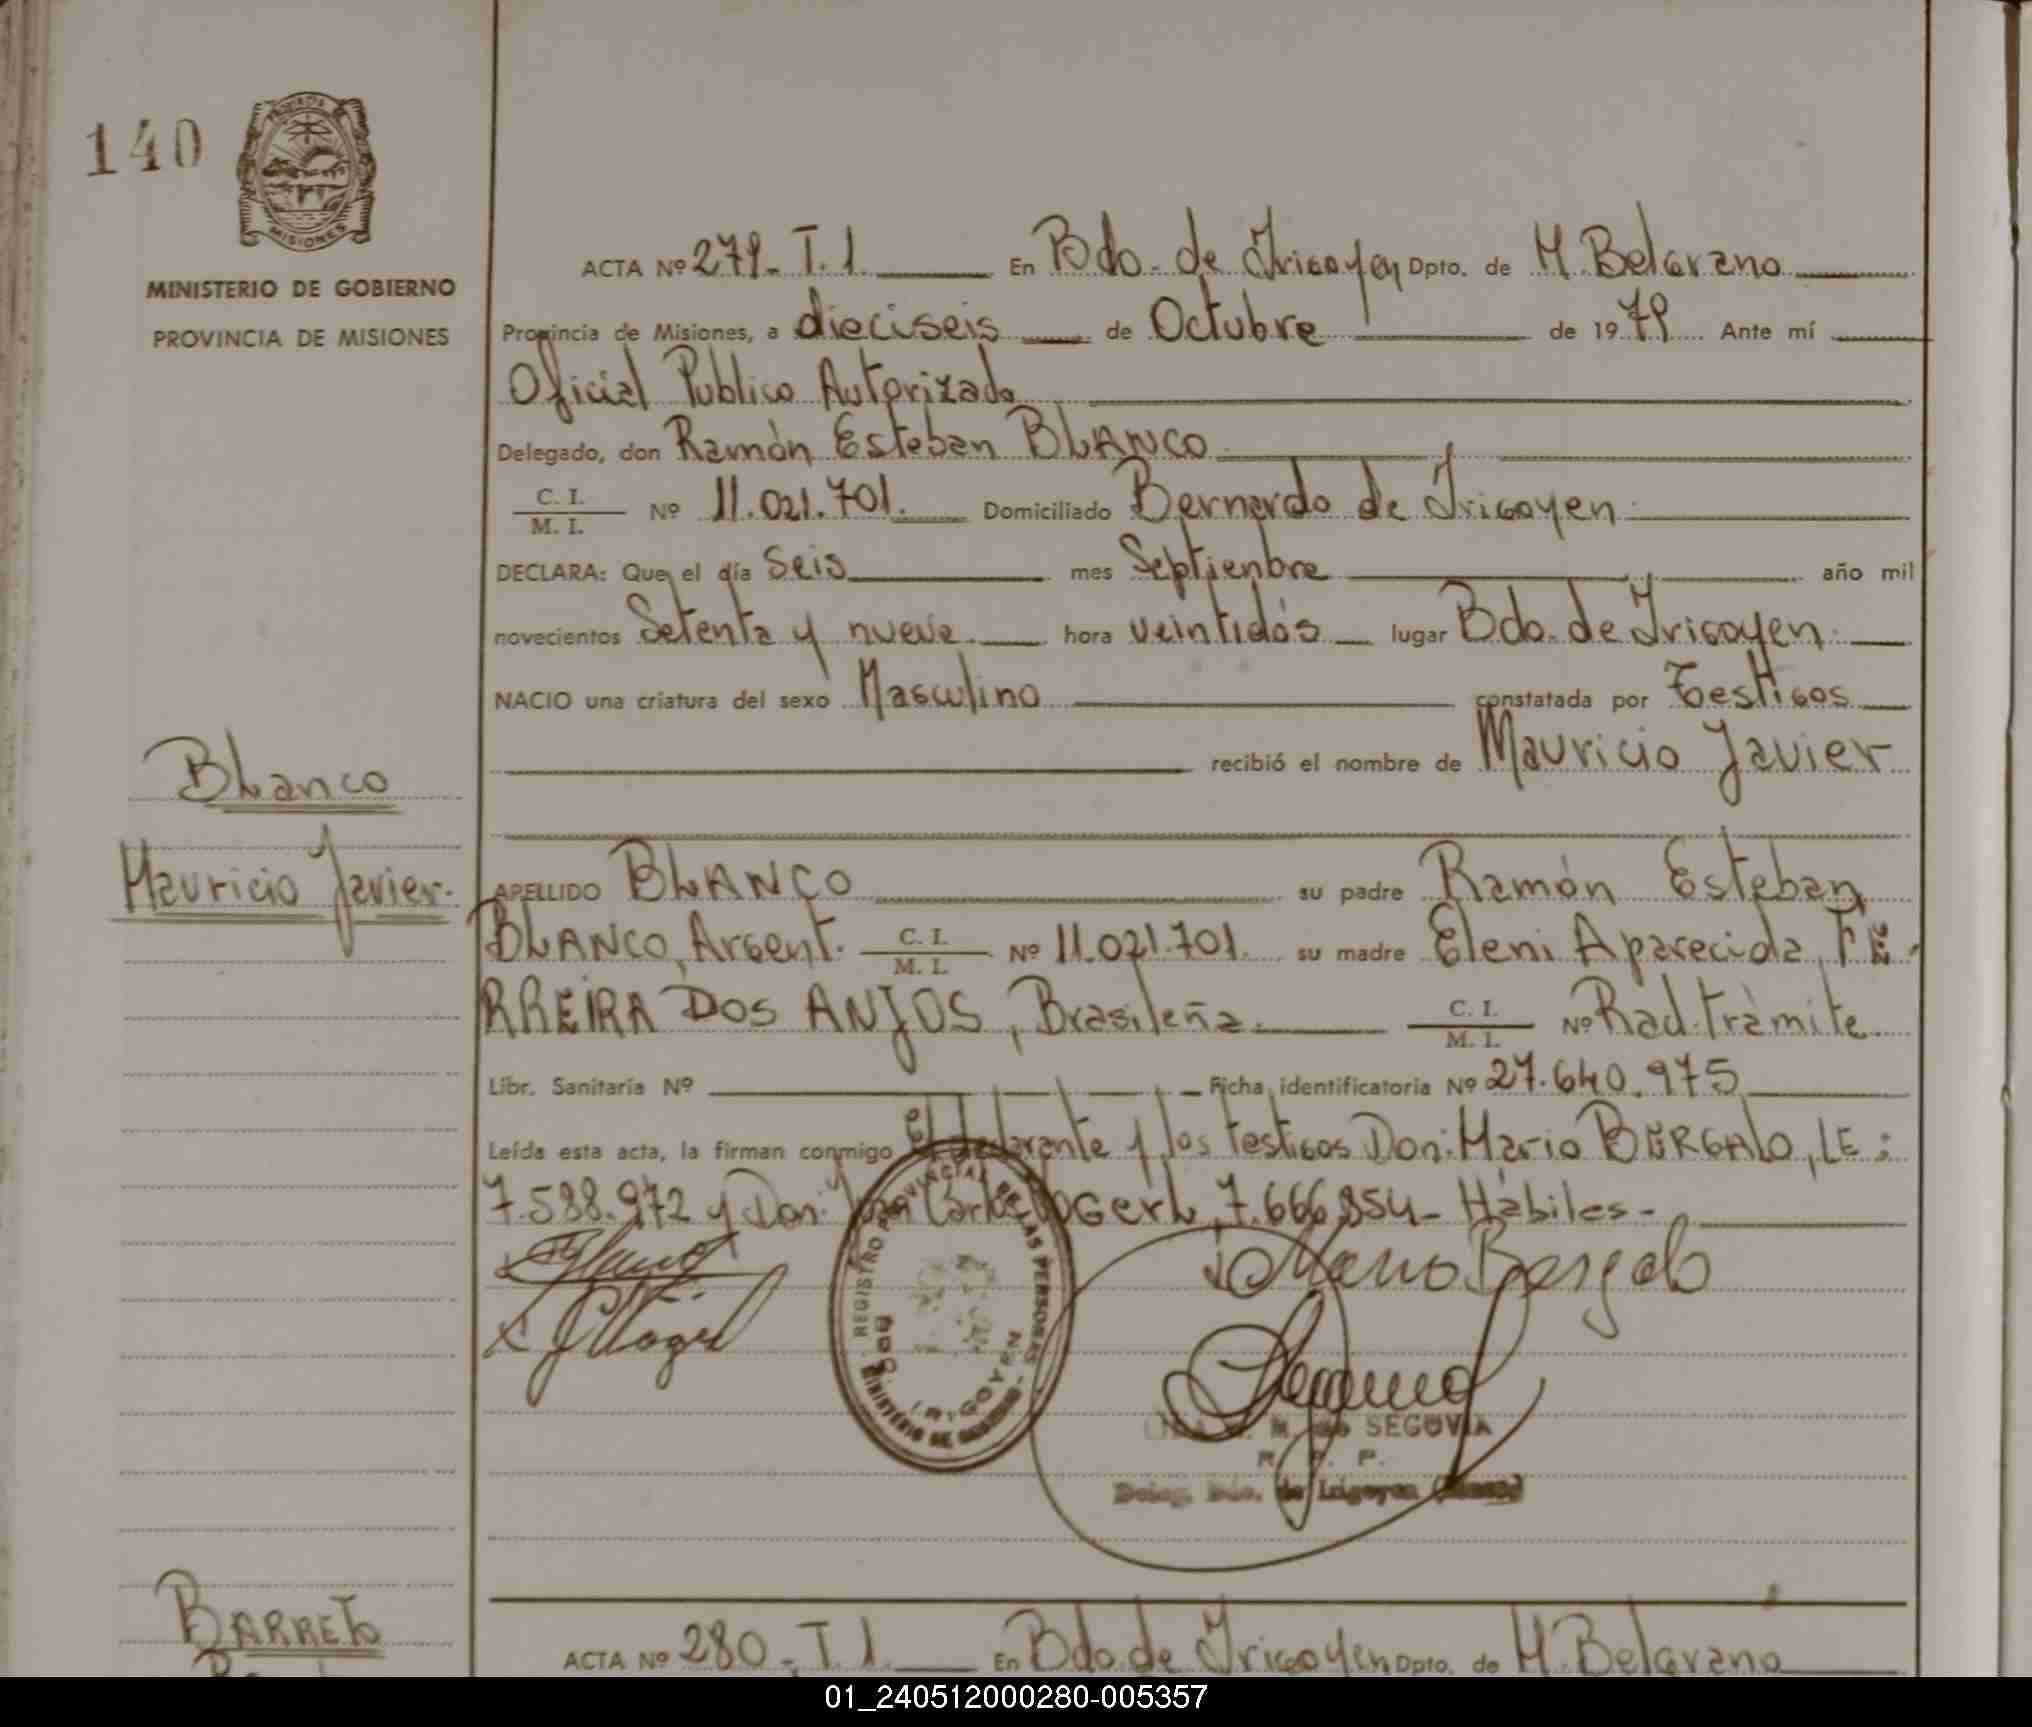 140
PROVINCIA
MISIONES
MINISTERIO DE GOBIERNO
PROVINCIA DE MISIONES
ACTA Nº 279- T. 1. En Bdo. de Irigoyen Dpto. de M. Belgrano
Provincia de Misiones, a dieciseis de Octubre de 1979 Ante mí
Oficial Publico Autorizado
Delegado, don Ramón Esteban BLANCO
C. I. / M. I. Nº 11.021.701. Domiciliado Bernardo de Irigoyen
DECLARA: Que el día Seis mes Septienbre año mil
novecientos Setenta y nueve hora veintidós lugar Bdo. de Irigoyen.
NACIO una criatura del sexo Masculino constatada por Testigos
recibió el nombre de Mauricio Javier
Blanco
Mauricio Javier.
APELLIDO BLANCO su padre Ramón Esteban
BLANCO, Argent. C. I. / M. I. Nº 11.021.701. su madre Eleni Aparecida FE-
RREIRA DOS ANJOS, Brasileña. C. I. / M. I. Nº Rad. tràmite
Libr. Sanitaria Nº Ficha identificatoria Nº 27.640.975
Leída esta acta, la firman conmigo el declarante y los testigos Don: Mario BERGALO, LE:
7.588.972 y Don: Carlos 7.666.854- Hàbiles-
Blanco
Mario Bergalo
REGISTRO PROVINCIAL DE LAS PERSONAS
BDO. IRIGOYEN
MINISTERIO DE GOBIERNO
M. de SEGOVIA
R. P. P.
Deleg. Bdo. de Irigoyen
BARRETO
ACTA Nº 280- T 1. En Bdo. de Irigoyen Dpto. de M. Belgrano
01_240512000280-005357